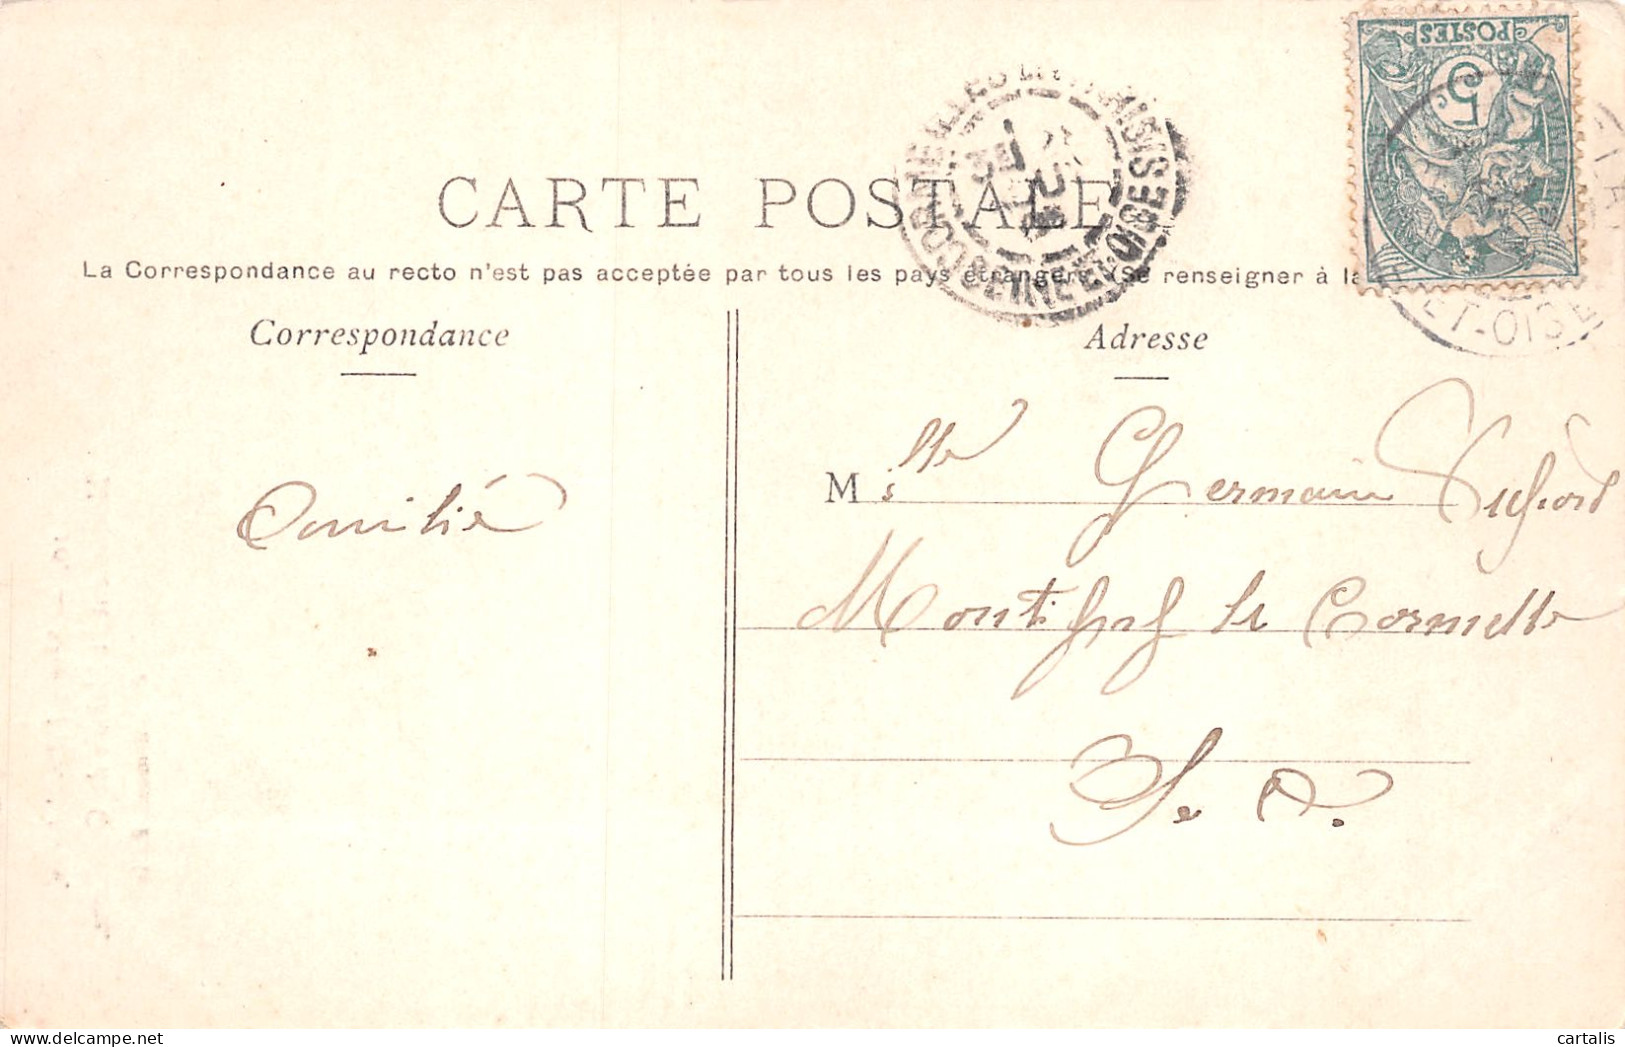 CARTE POSTALE
La Correspondance au recto n'est pas acceptée par tous les pays étrangers (Se renseigner à la
Correspondance
Adresse
POSTES
5
CORMEILLES EN PARISIS
SEINE ET OISE
ET-OISE
Amitié
Mlle Germain
Montigny le Cormelle
S et O.
www.delcampe.net
cartalis